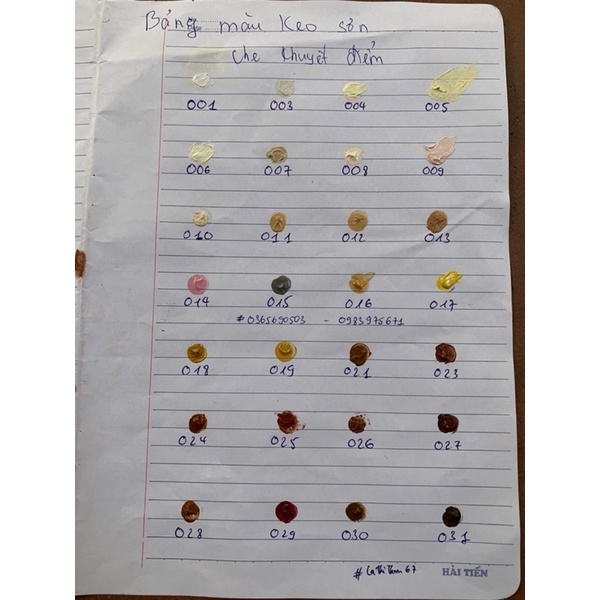 Bảng màu Keo sơn
che khuyết điểm
001 003 004 005
006 007 008 009
010 011 012 013
014 015 016 017
#0365690503 - 0983975671
018 019 021 023
024 025 026 027
028 029 030 031
HẢI TIẾN